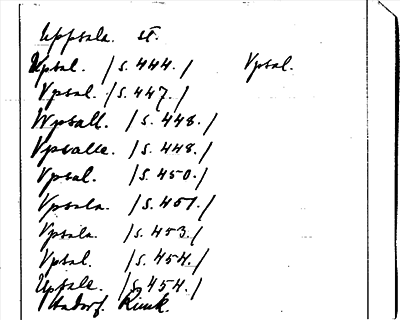 Uppsala. st.
Upsal. /s. 444./ Vpsal.
Vpsal. /s. 447./
Wpsall. /s. 448./
Vpsalla. /s. 448./
Vpsal. /s. 450./
Vpsala. /s. 451./
Vpsala. /s. 453./
Vpsal. /s. 454./
Upsale. /s. 454./